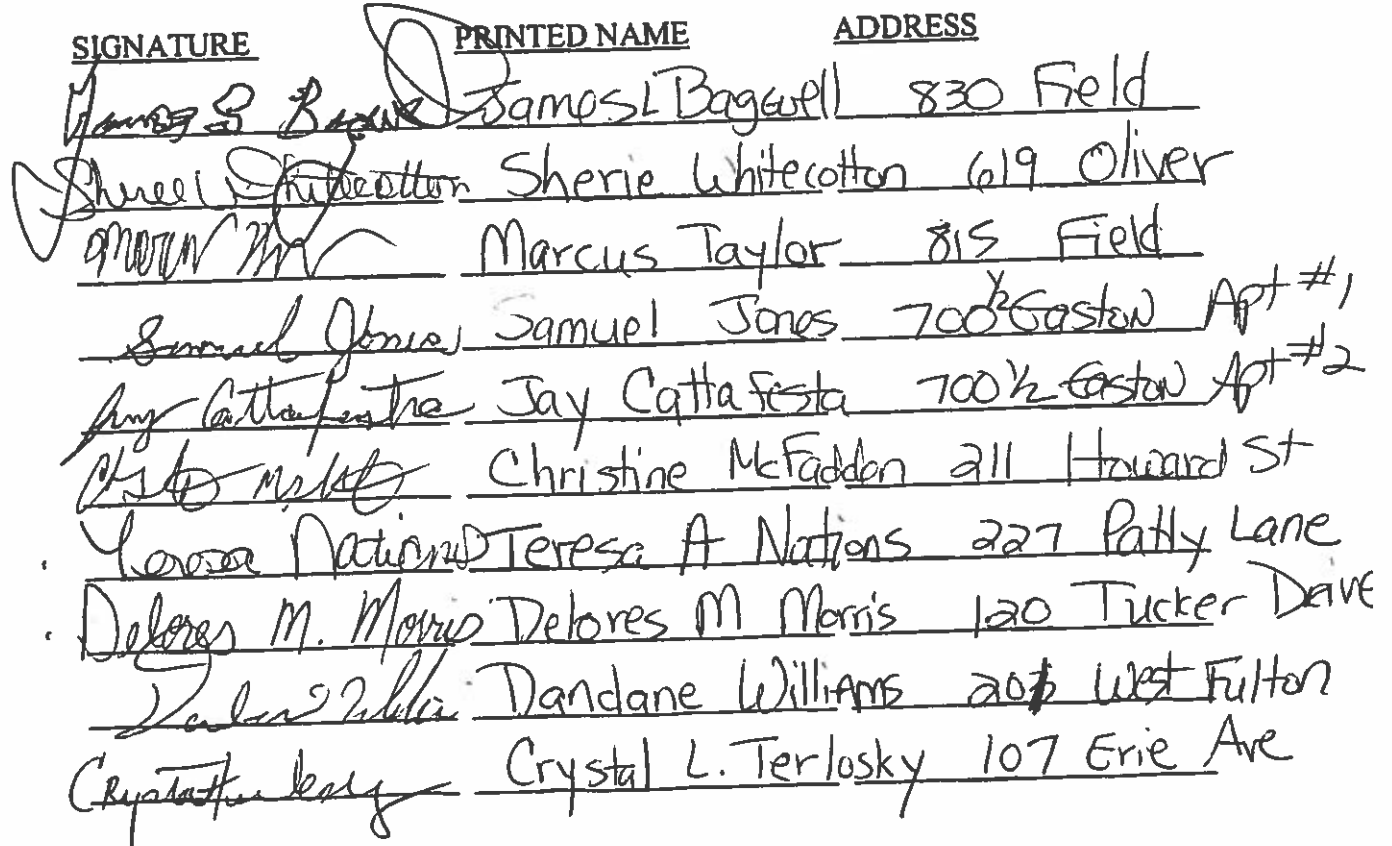 SIGNATURE PRINTED NAME ADDRESS
James L Bagwell 830 Field
Whitecotton Sherie Whitecotton 619 Oliver
Marcus Taylor 815 Field
Samuel Jones Samuel Jones 700 1/2 Easton Apt #1
Jay Cattafesta 700 1/2 Easton Apt #2
Christine McFadden 211 Howard St
Teresa Nations Teresa A Nations 227 Patly Lane
Delores M. Morris Delores M Morris 120 Tucker Drive
Dandane Williams West Fulton
Crystal L. Terlosky 107 Erie Ave